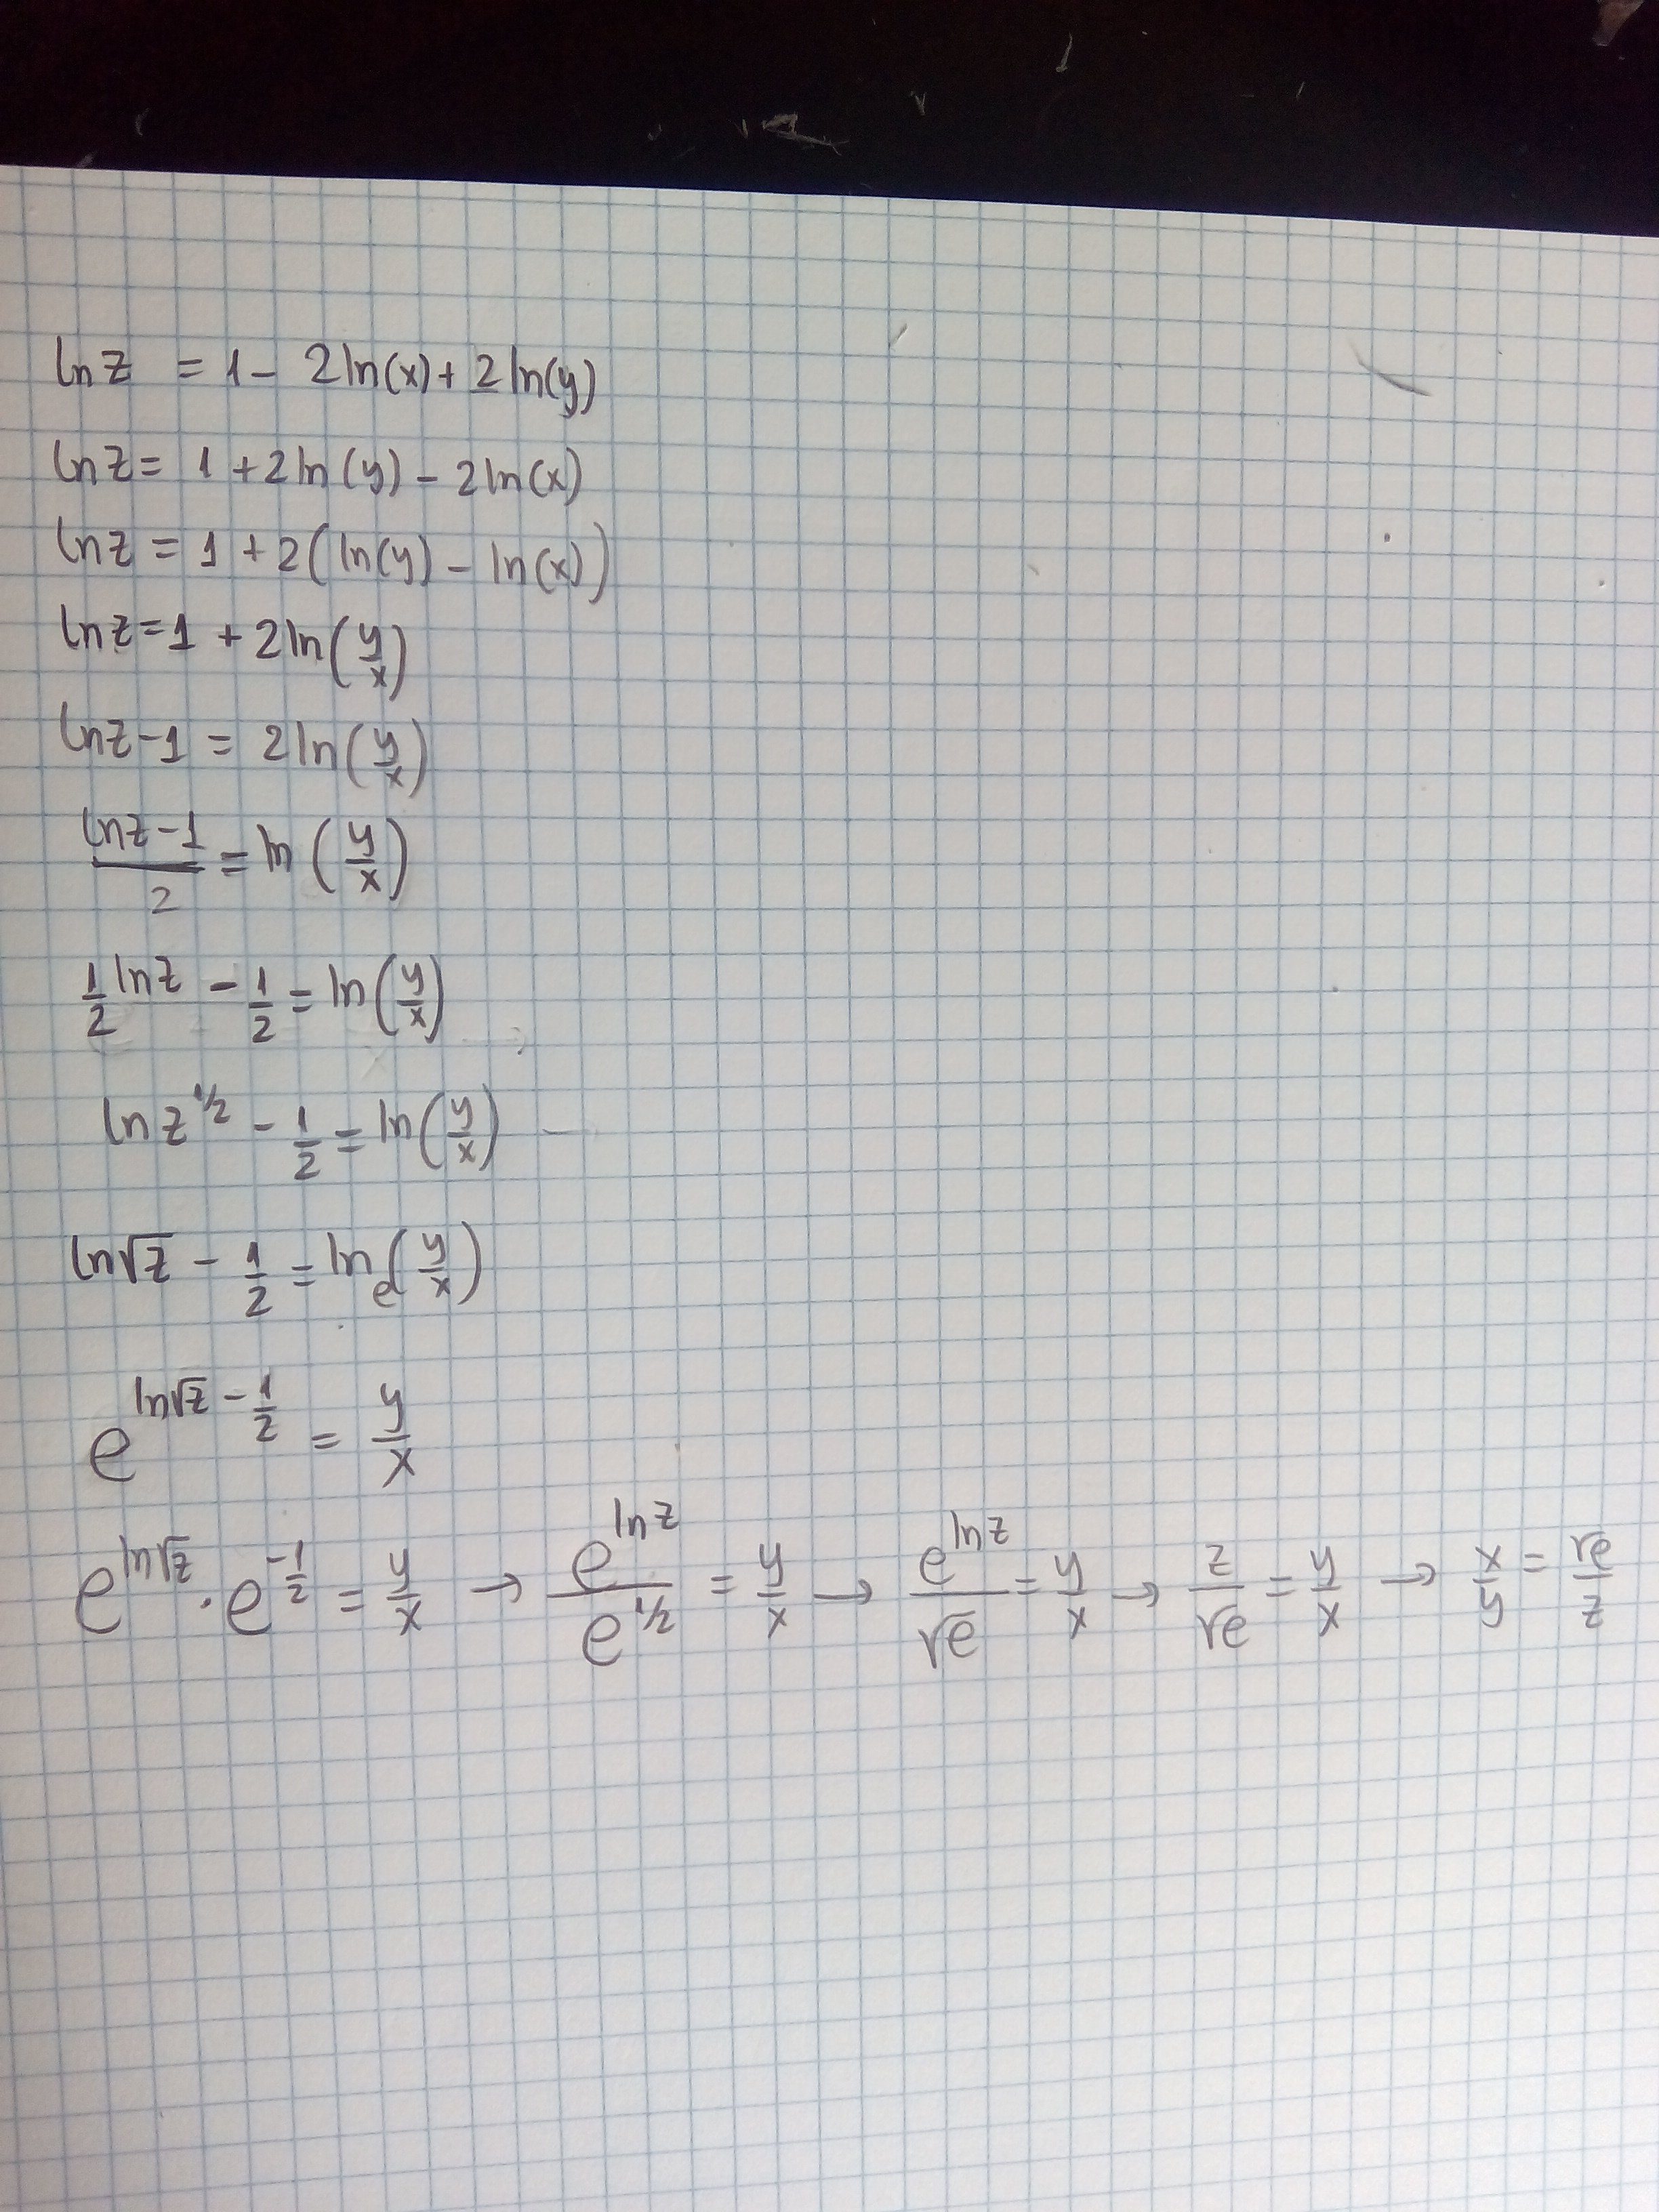 ln z = 1 - 2 ln(x) + 2 ln(y)
ln z = 1 + 2 ln(y) - 2 ln(x)
ln z = 1 + 2(ln(y) - ln(x))
ln z = 1 + 2 ln(y/x)
ln z - 1 = 2 ln(y/x)
(ln z - 1)/2 = ln(y/x)
1/2 ln z - 1/2 = ln(y/x)
ln z^(1/2) - 1/2 = ln(y/x)
ln √z - 1/2 = ln_e(y/x)
e^(ln √z - 1/2) = y/x
e^(ln √z) · e^(-1/2) = y/x → e^(ln z)/e^(1/2) = y/x → e^(ln z)/√e = y/x → z/√e = y/x → x/y = √e/z